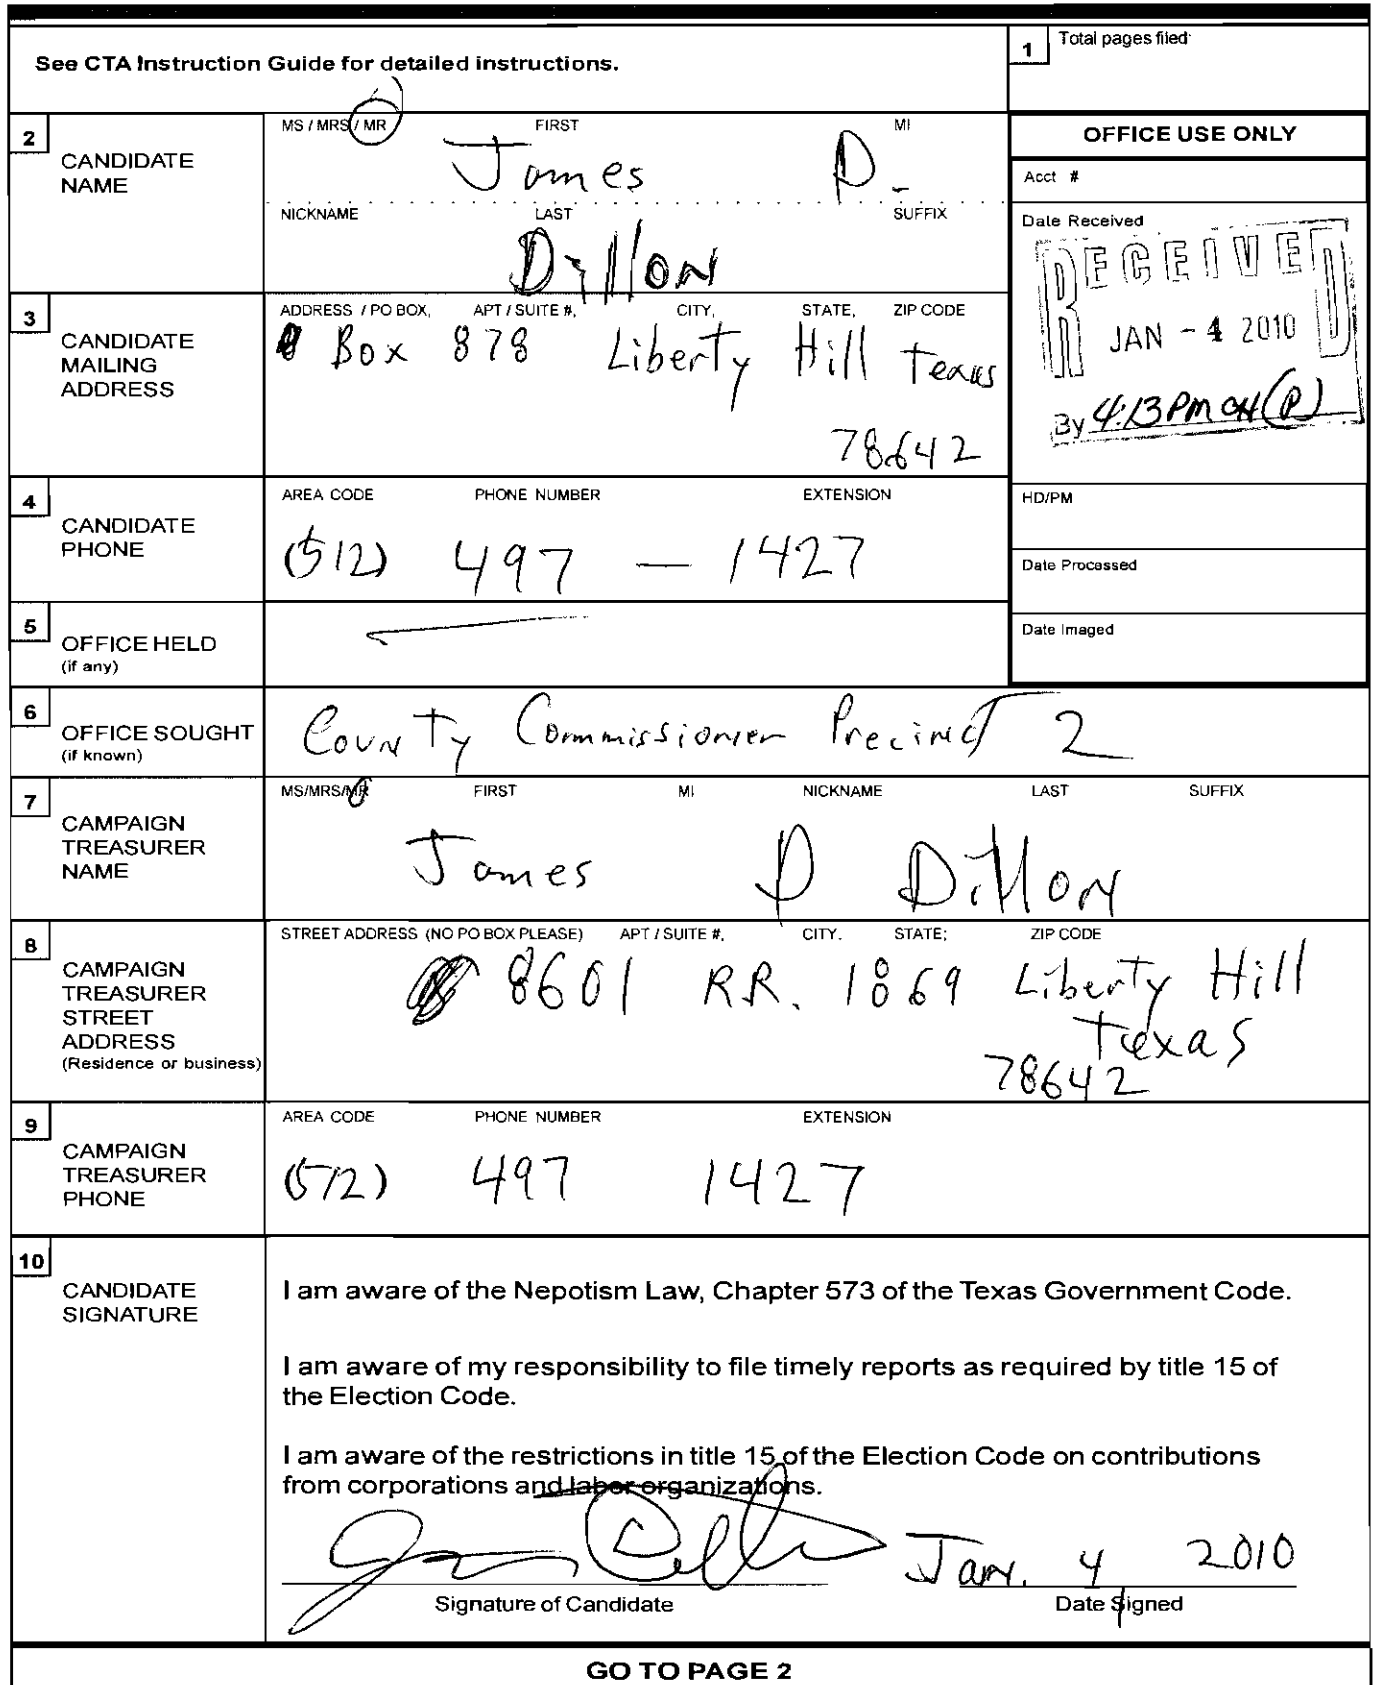 See CTA Instruction Guide for detailed instructions.
1 Total pages filed:
2 CANDIDATE NAME
MS / MRS / MR FIRST MI
James D.
NICKNAME LAST SUFFIX
Dillon
OFFICE USE ONLY
Acct #
Date Received
RECEIVED
JAN - 4 2010
By 4:13 PM (P)
HD/PM
Date Processed
Date Imaged
3 CANDIDATE MAILING ADDRESS
ADDRESS / PO BOX, APT / SUITE #, CITY, STATE, ZIP CODE
Box 878 Liberty Hill Texas
78642
4 CANDIDATE PHONE
AREA CODE PHONE NUMBER EXTENSION
(512) 497 — 1427
5 OFFICE HELD
(if any)
6 OFFICE SOUGHT
(if known)
County Commissioner Precinct 2
7 CAMPAIGN TREASURER NAME
MS/MRS/MR FIRST MI NICKNAME LAST SUFFIX
James D Dillon
8 CAMPAIGN TREASURER STREET ADDRESS
(Residence or business)
STREET ADDRESS (NO PO BOX PLEASE) APT / SUITE #, CITY. STATE; ZIP CODE
8601 R.R. 1869 Liberty Hill
Texas
78642
9 CAMPAIGN TREASURER PHONE
AREA CODE PHONE NUMBER EXTENSION
(512) 497 1427
10 CANDIDATE SIGNATURE
I am aware of the Nepotism Law, Chapter 573 of the Texas Government Code.
I am aware of my responsibility to file timely reports as required by title 15 of
the Election Code.
I am aware of the restrictions in title 15 of the Election Code on contributions
from corporations and labor organizations.
Jan. 4 2010
Signature of Candidate Date Signed
GO TO PAGE 2